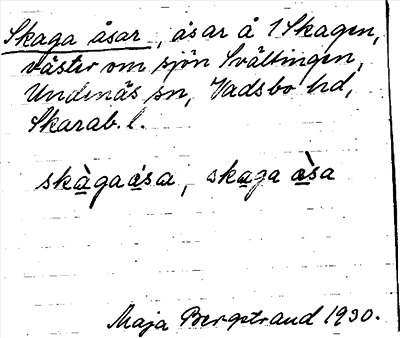 Skaga åsar, åsar å 1 Skagen,
väster om sjön Svältingen,
Undenäs sn, Vadsbo hd,
Skarab. l.
skàgaása, skaga àsa
Maja Bergstrand 1930.